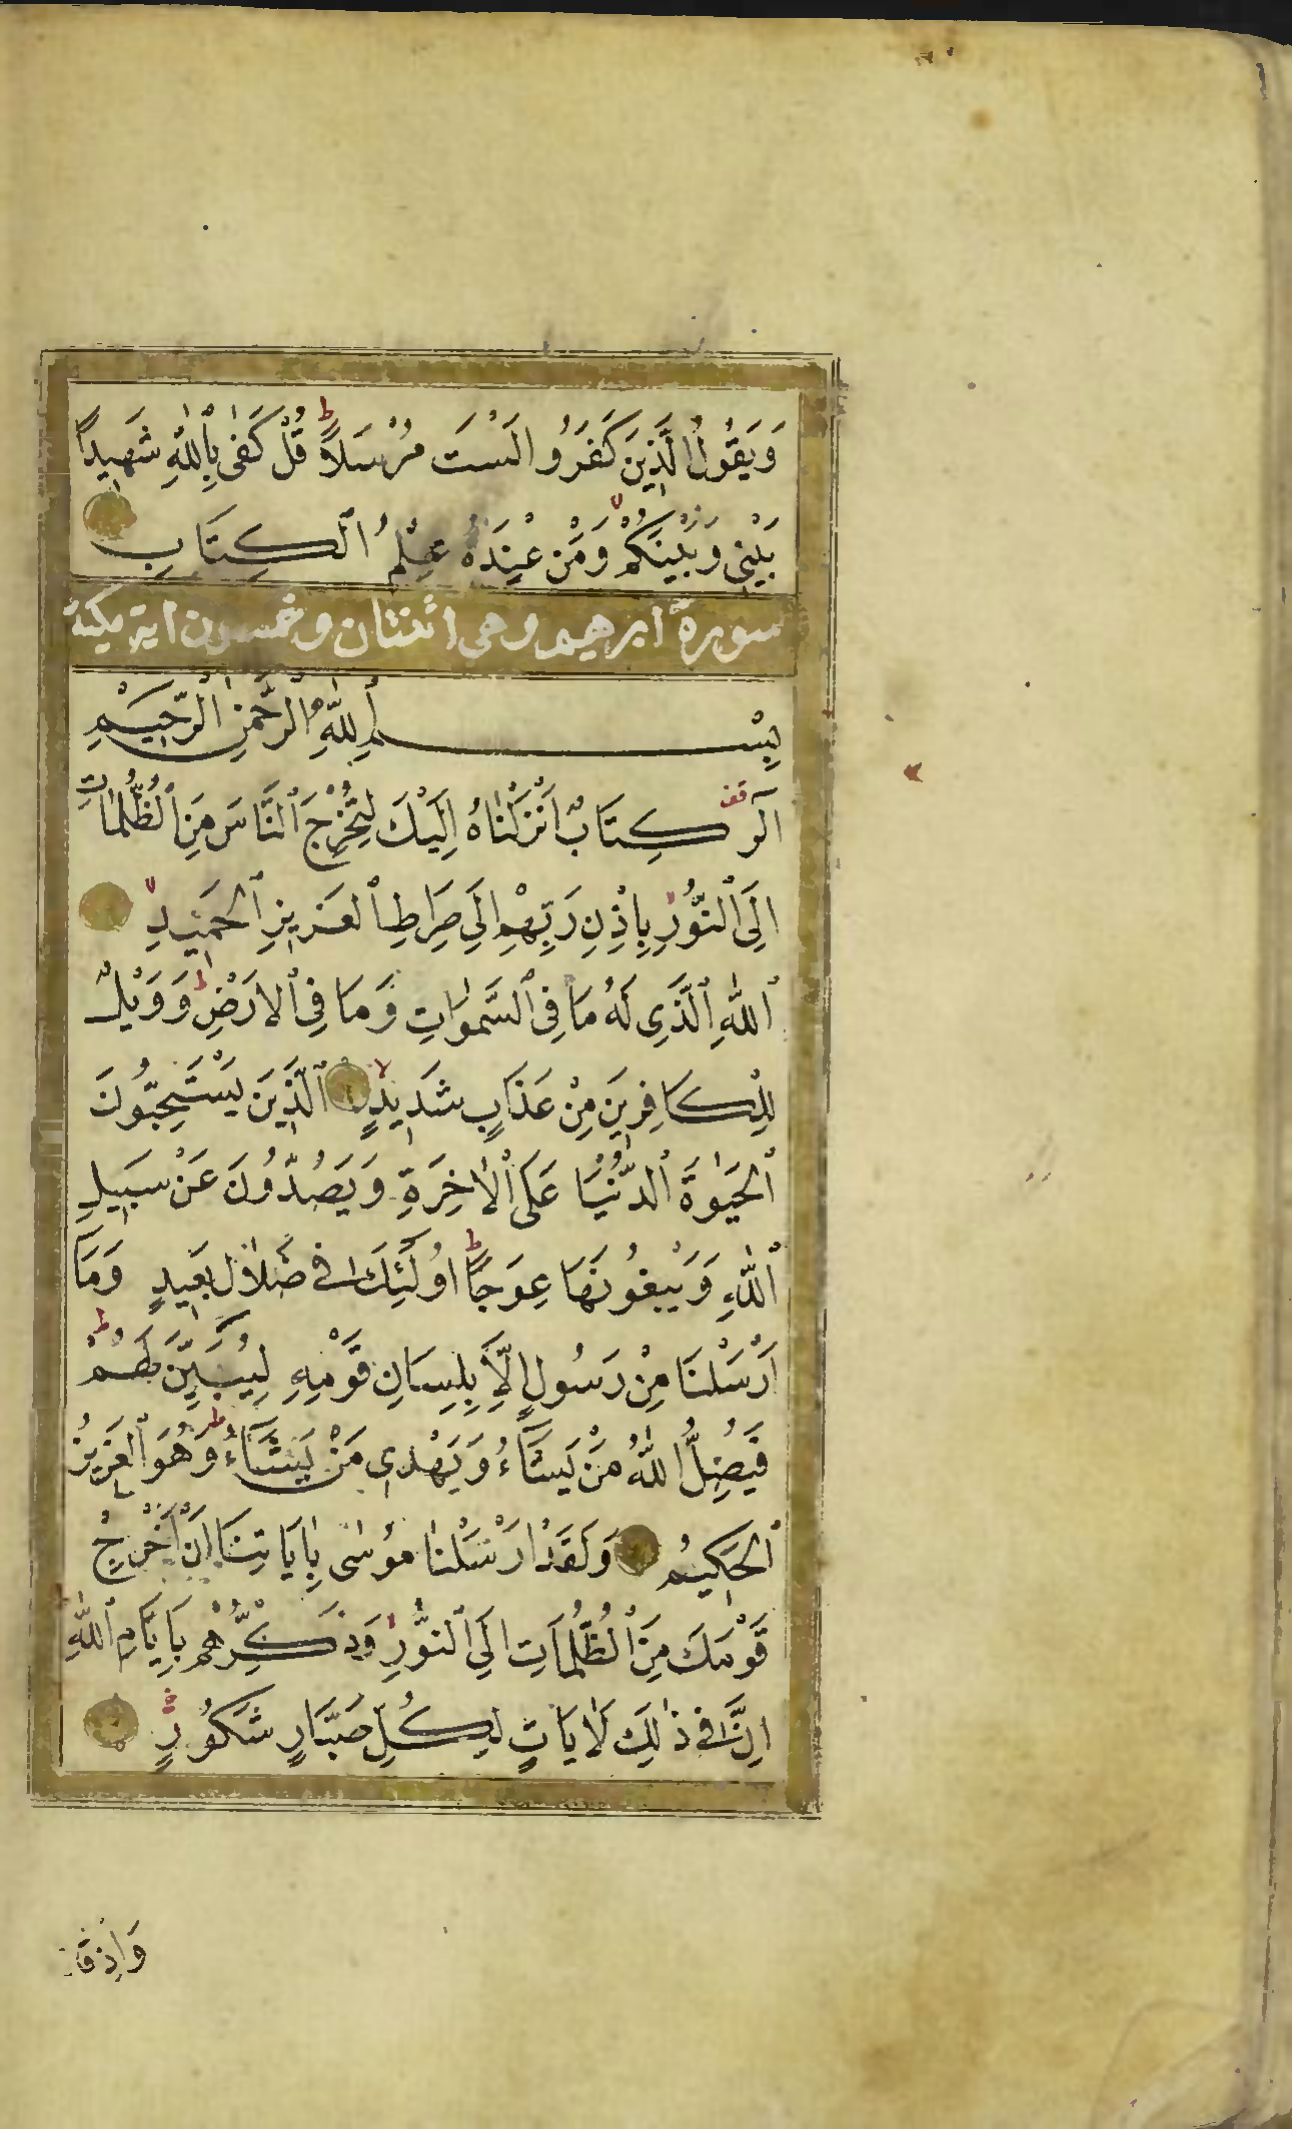 وَيَقُولُ الَّذِينَ كَفَرُوا لَسْتَ مُرْسَلاً ط قُلْ كَفٰى بِاللّٰهِ شَهِيدًا
بَيْنِي وَبَيْنَكُمْ وَمَنْ عِنْدَهُ عِلْمُ الْكِتَابِ
سورة ابرهيم وهي اثنتان وخمسون اية مكية
بِسْمِ اللّٰهِ الرَّحْمٰنِ الرَّحِيمِ
الٓرٰ قف كِتَابٌ اَنْزَلْنَاهُ اِلَيْكَ لِتُخْرِجَ النَّاسَ مِنَ الظُّلُمَاتِ
اِلَى النُّورِ بِاِذْنِ رَبِّهِمْ اِلَى صِرَاطِ الْعَزِيزِ الْحَمِيدِ لا
اَللّٰهِ الَّذِي لَهُ مَا فِي السَّمٰوَاتِ وَمَا فِي الْاَرْضِ ط وَوَيْلٌ
لِلْكَافِرِينَ مِنْ عَذَابٍ شَدِيدٍ لا اَلَّذِينَ يَسْتَحِبُّونَ
الْحَيٰوةَ الدُّنْيَا عَلَى الْاٰخِرَةِ وَيَصُدُّونَ عَنْ سَبِيلِ
اللّٰهِ وَيَبْغُونَهَا عِوَجًا ط اُولٰئِكَ فِي ضَلَالٍ بَعِيدٍ وَمَا
اَرْسَلْنَا مِنْ رَسُولٍ اِلَّا بِلِسَانِ قَوْمِهِ لِيُبَيِّنَ لَهُمْ ط
فَيُضِلُّ اللّٰهُ مَنْ يَشَآءُ وَيَهْدِي مَنْ يَشَآءُ ط وَهُوَ الْعَزِيزُ
الْحَكِيمُ وَلَقَدْ اَرْسَلْنَا مُوسٰى بِاٰيَاتِنَا اَنْ اَخْرِجْ
قَوْمَكَ مِنَ الظُّلُمَاتِ اِلَى النُّورِ وَذَكِّرْهُمْ بِاَيَّامِ اللّٰهِ ط
اِنَّ فِي ذٰلِكَ لَاٰيَاتٍ لِكُلِّ صَبَّارٍ شَكُورٍ
وَاِذْ قَا